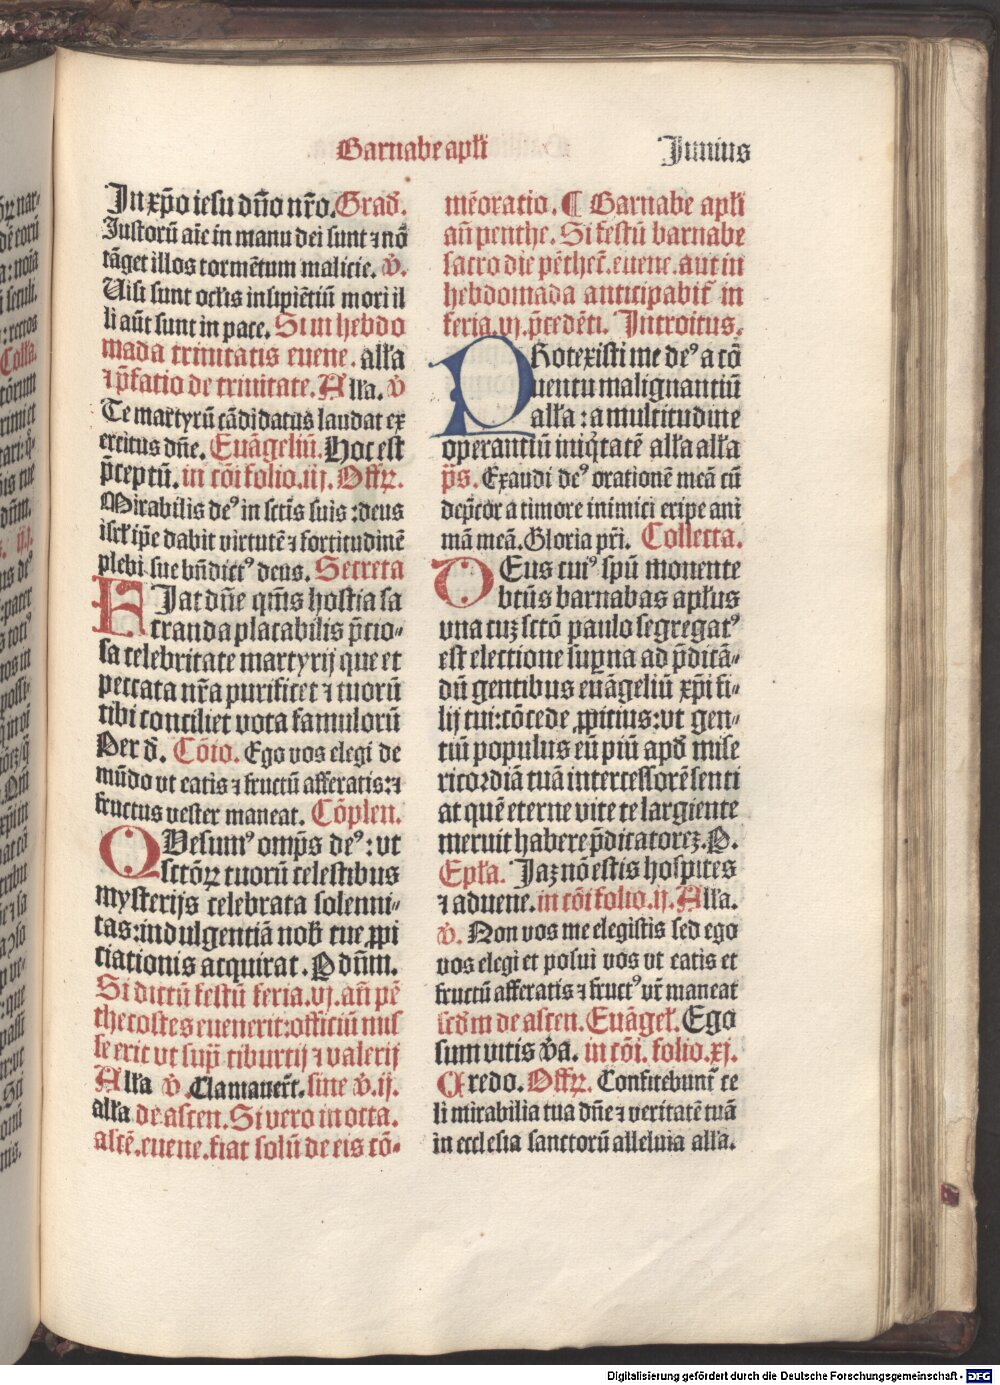 Barnabe apłi
Junius
In xp̄o iesu dn̄o nr̄o. Grad̄.
Iustorū aīe in manu dei sunt ⁊ nō
tāget illos tormētum malicie. v̄.
Uisi sunt ocłis insipiētiū mori il
li aūt sunt in pace. Si in hebdo
mada trinitatis euene. ałła
⁊ p̄fatio de trinitate. Alła. v̄
Te martyrū cādidatus laudat ex
ercitus dn̄e. Euāgeliū. Hoc est
p̄ceptū. in cōi folio .iij. Offꝝ.
Mirabilis deꝰ in sctīs suis : deus
isrł ip̄e dabit virtutē ⁊ fortitudinē
plebi sue bn̄dictꝰ deus. Secreta
FJat dn̄e qm̄s hostia sa
cranda placabilis p̄cio-
sa celebritate martyrij que et
peccata nr̄a purificet ⁊ tuorū
tibi conciliet vota famulorū
Per d̄. Cōio. Ego vos elegi de
mūdo vt eatis ⁊ fructū afferatis: ⁊
fructus vester maneat. Cōplen.
QUesumꝰ omp̄s deꝰ : vt
sctōꝝ tuorū celestibus
mysterijs celebrata solenni-
tas: indulgentiā nob̄ tue ꝓpi
ciationis acquirat. P dn̄m.
Si dictū festū feria .vj. an̄ pē
thecostes euenerit: officiū mis
se erit vt sup̄ tiburtij ⁊ valerij
Ałła v̄. Clamauer̄t. sine v̄. ij.
ałła de ascen. Si vero in octa.
ascē. euene. fiat solū de eis cō-
mēoratio. ¶ Barnabe apłi
an̄ penthe. Si festū barnabe
sacro die pēthec̄. euene. aut in
hebdomada anticipabit̄ in
feria .vj. p̄cedēti. Introitus.
PRotexisti me deꝰ a cō
uentu malignantiū
ałła : a multitudine
operantiū iniq̇tatē ałła ałła
p̄s. Exaudi deꝰ orationē meā cū
dep̄cor a timore inimici eripe ani
mā meā. Gloria pr̄i. Collecta.
DEus cuiꝰ spū monente
btūs barnabas apłus
vna cuꝫ sctō paulo segregatꝰ
est electione sup̄na ad p̄dicā-
dū gentibus euāgeliū xp̄i fi-
lij tui: cōcede ꝓpitius: vt gen-
tiū populus eū piū apd̄ mise
ricordiā tuā intercessorē senti
at quē eterne vite te largiente
meruit habere p̄dicatoreꝫ. P.
Epła. Jaꝫ nō estis hospites
⁊ aduene. in cōi folio .ij. Ałła.
v̄. Non vos me elegistis sed ego
vos elegi et posui vos vt eatis et
fructū afferatis ⁊ fructꝰ vr̄ maneat
scd̄m de ascen. Euāgeł. Ego
sum vitis v̄a. in cōi. folio .xj.
Credo. Offꝝ. Confitebunt̄ ce
li mirabilia tua dn̄e ⁊ veritatē tuā
in ecclesia sanctorū alleluia ałła.
Digitalisierung gefördert durch die Deutsche Forschungsgemeinschaft - DFG